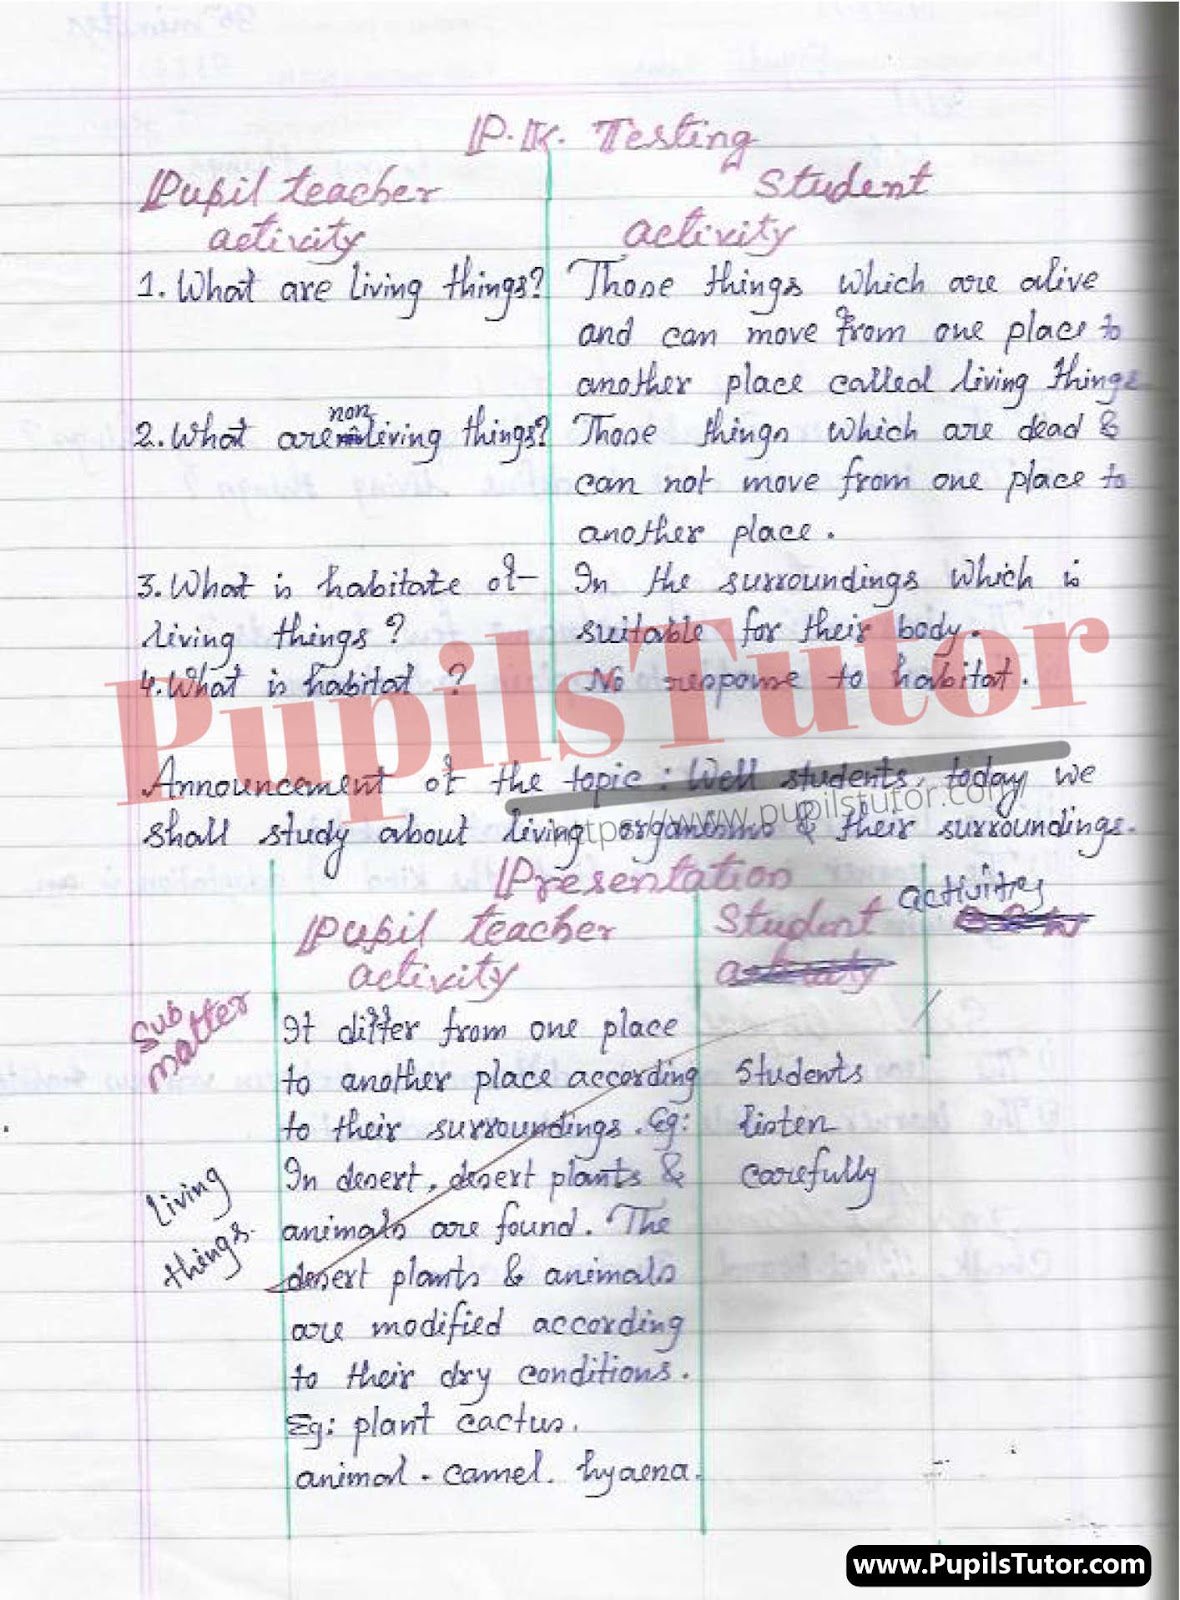 P.K. Testing
Pupil teacher
activity
Student
activity
1. What are living things?
Those things which are alive
and can move from one place to
another place called living things
2. What are non living things?
Those things which are dead &
can not move from one place to
another place.
3. What is habitate of
living things?
In the surroundings which is
suitable for their body.
4. What is habitat ?
No response to habitat.
Announcement of the topic: Well students, today we
shall study about living organisms & their surroundings.
Presentation
Sub
matter
Pupil teacher
activity
Student
activities
Living
things.
It differ from one place
to another place according
to their surroundings. Eg:
In desert, desert plants &
animals are found. The
desert plants & animals
are modified according
to their dry conditions.
Eg: plant cactus.
animal - camel. hyaena.
Students
listen
carefully
PupilsTutor
https://www.pupilstutor.com/
www.PupilsTutor.com